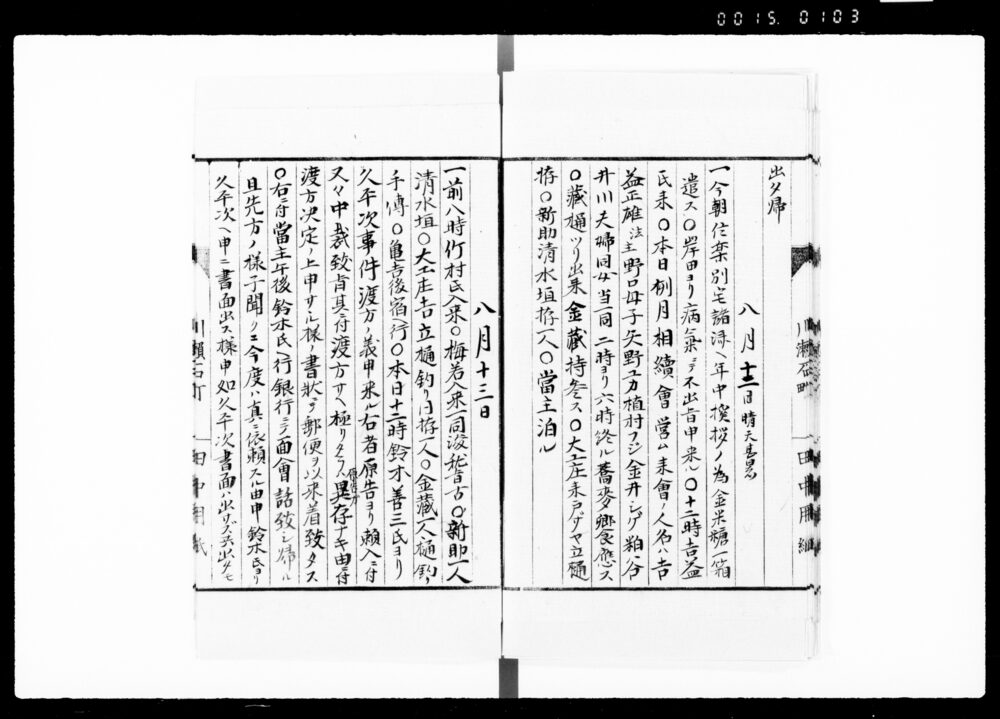 0015. 0103
出夕帰
八月十二日 晴天甚暑
一今朝信楽別宅諸淥ヘ年中挨拶ノ為金米糖一箱
遣ス〇岸田ヨリ病氣ニテ不出旨申来ル〇十二時吉益
氏来〇本日例月相續會営ム来會ノ人名ハ吉
益正雄法主野口母子矢野ユカ植村フジ金井シゲ粕谷
井川夫婦同女当一同二時ヨリ六時終ル蕎麥饗應ス
〇藏樋ツリ出来金藏持参ス〇大工庄来戸ザヤ立樋
拵〇新助清水垣拵一人〇當主泊ル
八月十三日
一前八時竹村氏入来〇梅若入来一同謡稽古〇新助一人
清水垣〇大工庄吉立樋釣リ内拵一人〇金藏一人樋釣リ
手傳〇亀吉後宿ヘ行〇本日十二時鈴木善三氏ヨリ
久平次事件渡方ノ義申来ル右者原告ヨリ頼入ニ付
又々中裁致旨其ニ付渡方サヘ極リタラハ原告方異存ナキ由ニ付
渡方決定ノ上申サル様ノ書状ヲ郵便ヲ以来着致タス
〇右ニ付當主午後鈴木氏ヘ行銀行ニテ面會話致シ帰ル
且先方ノ様子聞クニ今度ハ真ニ依頼スル由申鈴木氏ヨリ
久平次ヘ申ニ書面出ス様申如久平次書面ハ出サズ共出タモ
川瀬石町
田中用紙
川瀬石町
田中用紙